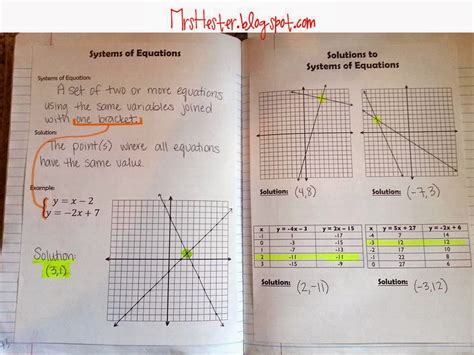 MrsHester.blogspot.com
Systems of Equations
Systems of Equation:
A set of two or more equations
using the same variables joined
with one bracket.
Solution:
The point(s) where all equations
have the same value.
Example:
y = x – 2
y = –2x + 7
Solution:
(3,1)
Solutions to
Systems of Equations
Solution: (4,8)
Solution: (-7,3)
x y = -4x – 3 y = 2x – 15
-1 1 -17
0 -3 -15
1 -7 -13
2 -11 -11
3 -15 -9
x y = 5x + 27 y = -2x + 6
-4 7 14
-3 12 12
-2 17 10
-1 22 8
0 27 6
Solution: (2,-11)
Solution: (-3,12)